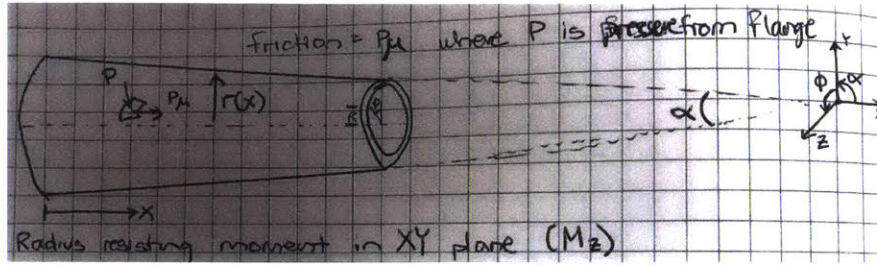 friction = Pμ where P is pressure from flange
P
Pμ
r(x)
α
Y
φ α
Z
X
Radius resisting moment in XY plane (Mz)